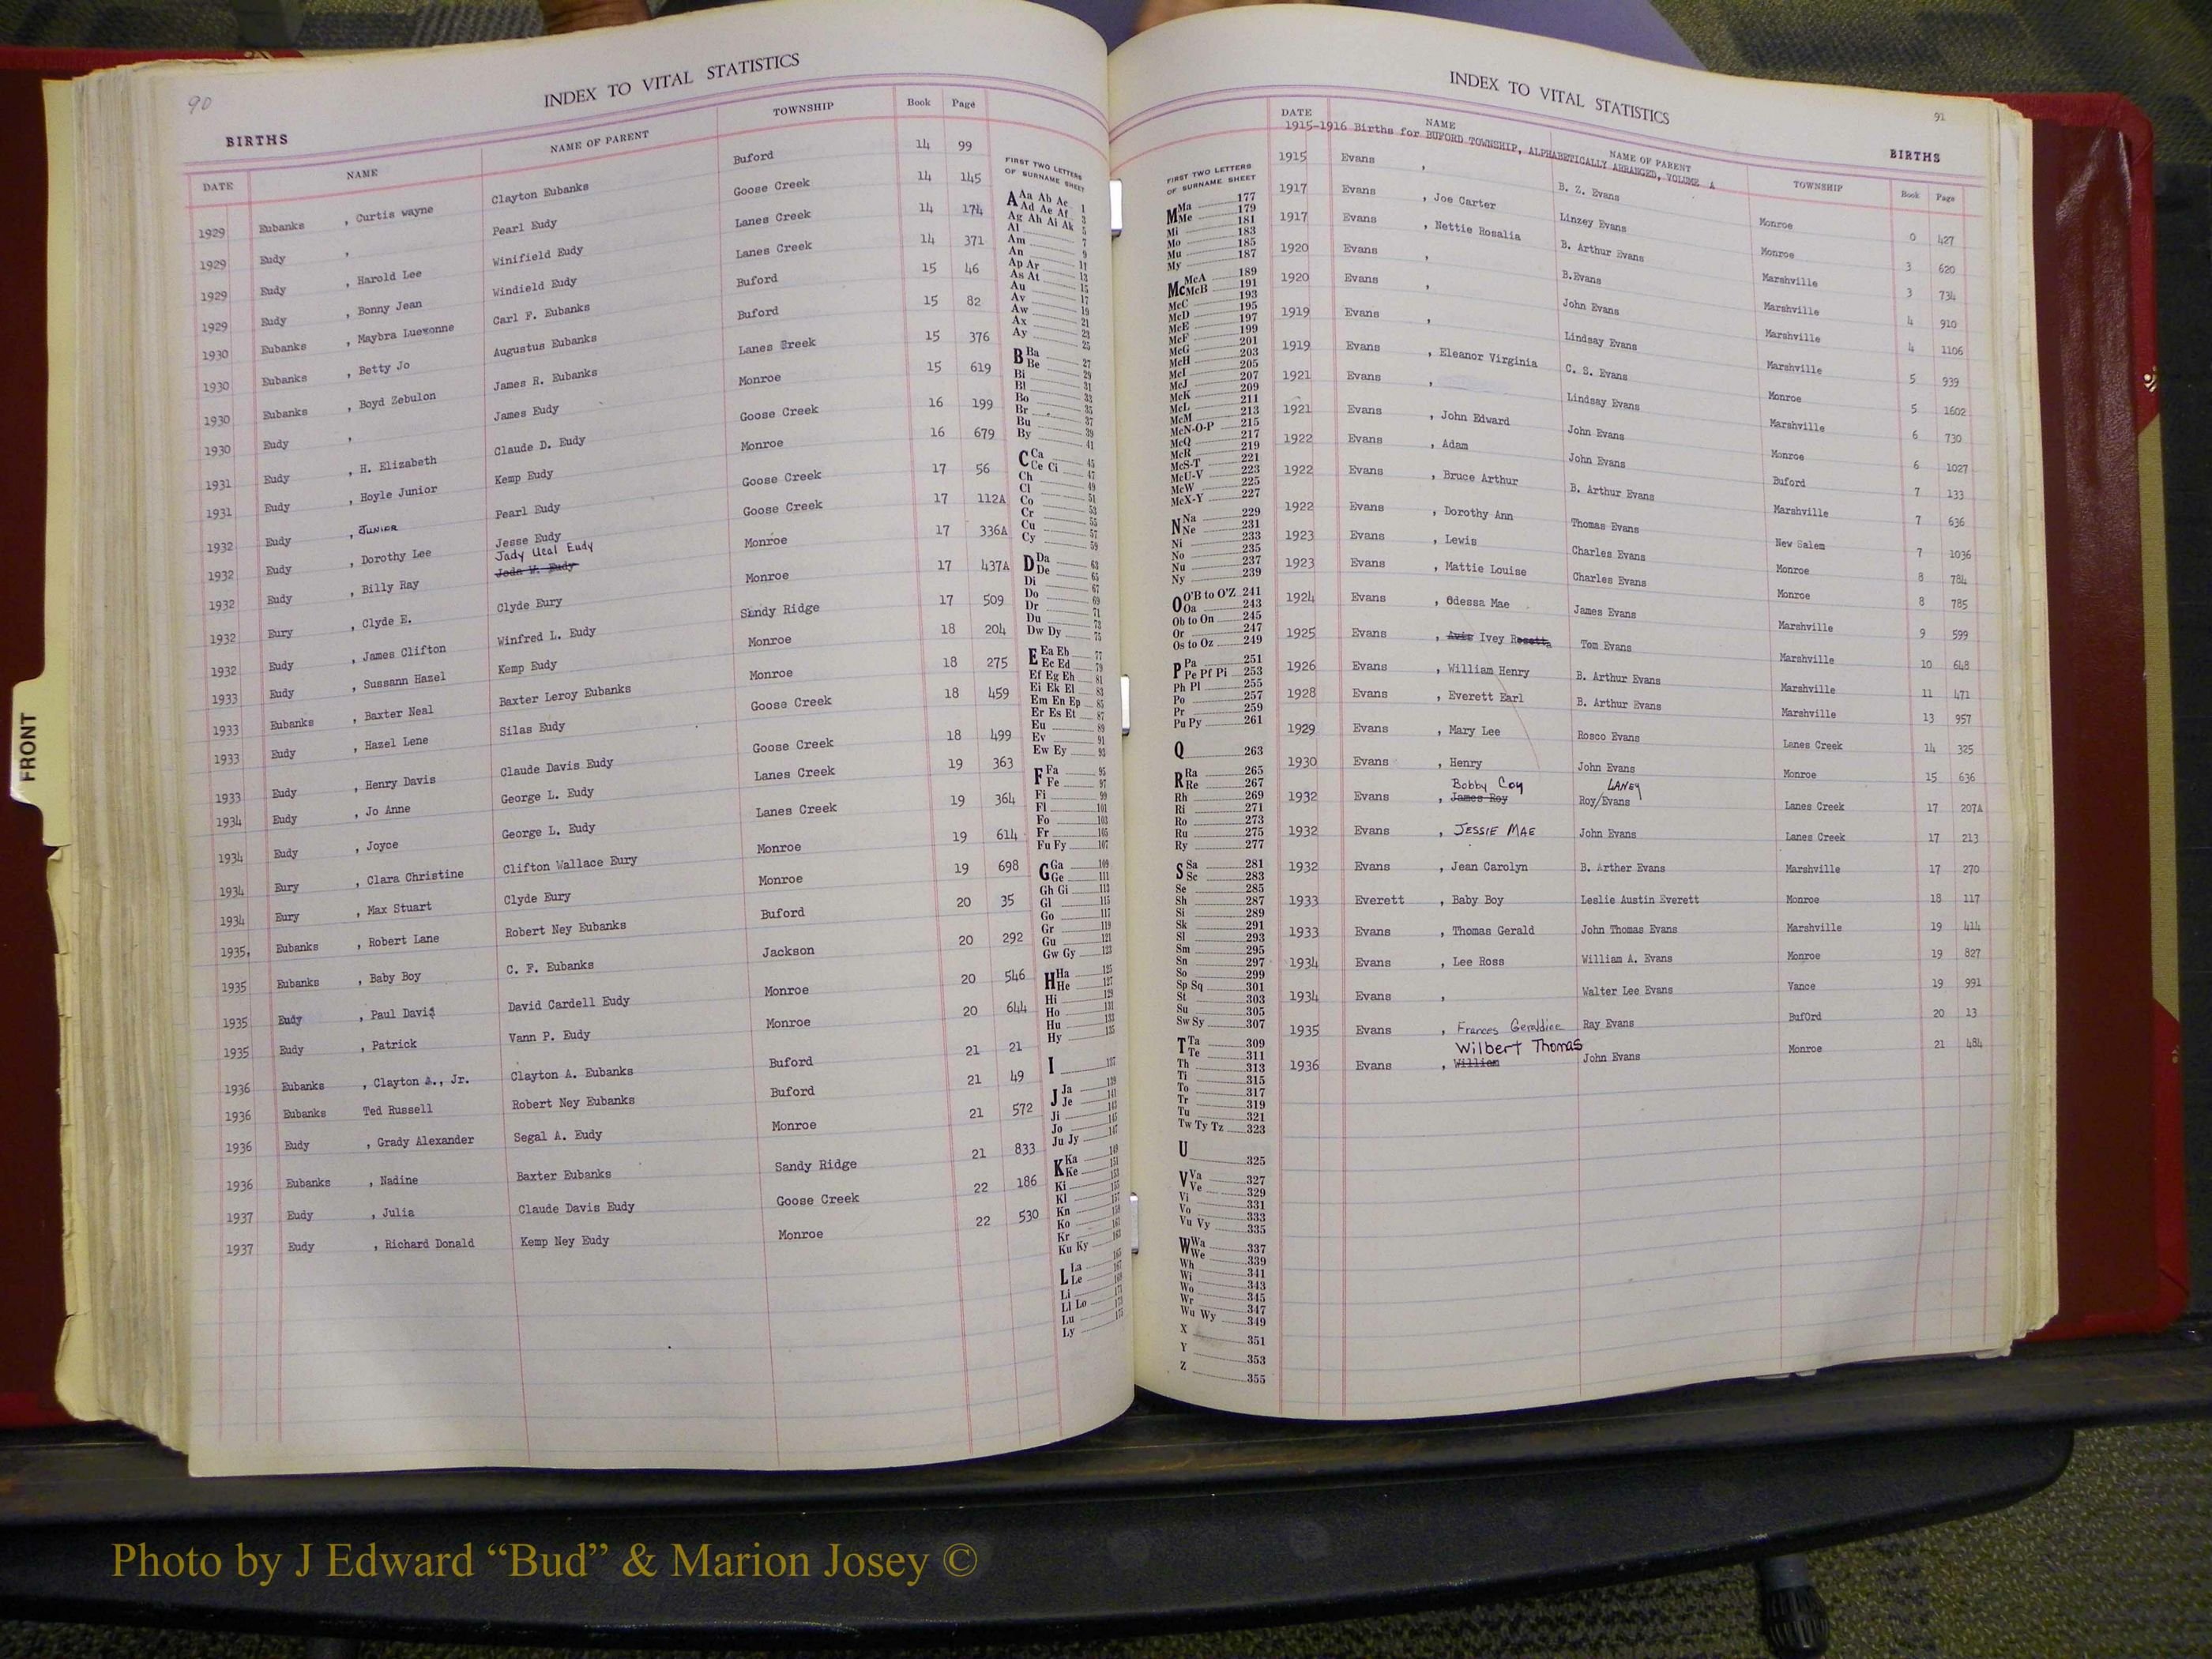 90
INDEX TO VITAL STATISTICS
BIRTHS
DATE NAME NAME OF PARENT TOWNSHIP Book Page
1929 Eubanks , Curtis wayne Clayton Eubanks Buford 14 99
1929 Eudy , Pearl Eudy Goose Creek 14 145
1929 Eudy , Harold Lee Winifield Eudy Lanes Creek 14 174
1929 Eudy , Bonny Jean Windield Eudy Lanes Creek 14 371
1930 Eubanks , Maybra Luevonne Carl F. Eubanks Buford 15 46
1930 Eubanks , Betty Jo Augustus Eubanks Buford 15 82
1930 Eubanks , Boyd Zebulon James R. Eubanks Lanes Creek 15 376
1930 Eudy , James Eudy Monroe 15 619
1931 Eudy , H. Elizabeth Claude D. Eudy Goose Creek 16 199
1931 Eudy , Hoyle Junior Kemp Eudy Monroe 16 679
1932 Eudy , Junior Pearl Eudy Goose Creek 17 56
1932 Eudy , Dorothy Lee Jesse Eudy Goose Creek 17 112A
Jady Ueal Eudy
1932 Eudy , Billy Ray Joda W. Eudy Monroe 17 336A
1932 Eury , Clyde E. Clyde Eury Monroe 17 437A
1932 Eudy , James Clifton Winfred L. Eudy Sandy Ridge 17 509
1933 Eudy , Sussann Hazel Kemp Eudy Monroe 18 204
1933 Eubanks , Baxter Neal Baxter Leroy Eubanks Monroe 18 275
1933 Eudy , Hazel Lene Silas Eudy Goose Creek 18 459
1933 Eudy , Henry Davis Claude Davis Eudy Goose Creek 18 499
1934 Eudy , Jo Anne George L. Eudy Lanes Creek 19 363
1934 Eudy , Joyce George L. Eudy Lanes Creek 19 364
1934 Eury , Clara Christine Clifton Wallace Eury Monroe 19 614
1934 Eury , Max Stuart Clyde Eury Monroe 19 698
1935, Eubanks , Robert Lane Robert Ney Eubanks Buford 20 35
1935 Eubanks , Baby Boy C. F. Eubanks Jackson 20 292
1935 Eudy , Paul David David Cardell Eudy Monroe 20 546
1935 Eudy , Patrick Vann P. Eudy Monroe 20 644
1936 Eubanks , Clayton A., Jr. Clayton A. Eubanks Buford 21 21
1936 Eubanks Ted Russell Robert Ney Eubanks Buford 21 49
1936 Eudy , Grady Alexander Segal A. Eudy Monroe 21 572
1936 Eubanks , Nadine Baxter Eubanks Sandy Ridge 21 833
1937 Eudy , Julia Claude Davis Eudy Goose Creek 22 186
1937 Eudy , Richard Donald Kemp Ney Eudy Monroe 22 530
FIRST TWO LETTERS
OF SURNAME SHEET
A Aa Ab Ac 1
Ad Ae Af 3
Ag Ah Ai Ak 5
Al 7
Am 9
An 11
Ap Ar 13
As At 15
Au 17
Av 19
Aw 21
Ax 23
Ay 25
B Ba 27
Be 29
Bi 31
Bl 33
Bo 35
Br 37
Bu 39
By 41
C Ca 45
Ce Ci 47
Ch 49
Cl 51
Co 53
Cr 55
Cu 57
Cy 59
D Da 63
De 65
Di 67
Do 69
Dr 71
Du 73
Dw Dy 75
E Ea Eb 77
Ec Ed 79
Ef Eg Eh 81
Ei Ek El 83
Em En Ep 85
Er Es Et 87
Eu 89
Ev 91
Ew Ey 93
F Fa 95
Fe 97
Fi 99
Fl 101
Fo 103
Fr 105
Fu Fy 107
G Ga 109
Ge 111
Gh Gi 113
Gl 115
Go 117
Gr 119
Gu 121
Gw Gy 123
H Ha 125
He 127
Hi 129
Ho 131
Hu 133
Hy 135
I 137
J Ja 139
Je 141
Ji 143
Jo 145
Ju Jy 147
K Ka 149
Ke 151
Ki 153
Kl 157
Kn 159
Ko 161
Kr 163
Ku Ky
L La 167
Le
Li 171
Ll Lo 173
Lu 175
Ly
INDEX TO VITAL STATISTICS
91
BIRTHS
DATE NAME NAME OF PARENT TOWNSHIP Book Page
1915-1916 Births for BUFORD TOWNSHIP, ALPHABETICALLY ARRANGED, VOLUME A
1915 Evans , B. Z. Evans Monroe 0 427
1917 Evans , Joe Carter Linzey Evans Monroe 3 620
1917 Evans , Nettie Rosalia B. Arthur Evans Marshville 3 734
1920 Evans , B.Evans Marshville 4 910
1920 Evans , John Evans Marshville 4 1106
1919 Evans , Lindsay Evans Marshville 5 939
1919 Evans , Eleanor Virginia C. S. Evans Monroe 5 1602
1921 Evans , Lindsay Evans Marshville 6 730
1921 Evans , John Edward John Evans Monroe 6 1027
1922 Evans , Adam John Evans Buford 7 133
1922 Evans , Bruce Arthur B. Arthur Evans Marshville 7 636
1922 Evans , Dorothy Ann Thomas Evans New Salem 7 1036
1923 Evans , Lewis Charles Evans Monroe 8 784
1923 Evans , Mattie Louise Charles Evans Monroe 8 785
1924 Evans , Odessa Mae James Evans Marshville 9 599
1925 Evans , Avis Ivey Rosetta Tom Evans Marshville 10 648
1926 Evans , William Henry B. Arthur Evans Marshville 11 471
1928 Evans , Everett Earl B. Arthur Evans Marshville 13 957
1929 Evans , Mary Lee Rosco Evans Lanes Creek 14 325
1930 Evans , Henry John Evans Monroe 15 636
Bobby Coy LANEY
1932 Evans , James Roy Roy/Evans Lanes Creek 17 207A
1932 Evans , JESSIE MAE John Evans Lanes Creek 17 213
1932 Evans , Jean Carolyn B. Arther Evans Marshville 17 270
1933 Everett , Baby Boy Leslie Austin Everett Monroe 18 117
1933 Evans , Thomas Gerald John Thomas Evans Marshville 19 414
1934 Evans , Lee Ross William A. Evans Monroe 19 827
1934 Evans , Walter Lee Evans Vance 19 991
1935 Evans , Frances Geraldine Ray Evans Buford 20 13
Wilbert Thomas
1936 Evans , William John Evans Monroe 21 484
FIRST TWO LETTERS
OF SURNAME SHEET
M Ma 177
Me 179
Mi 181
Mo 183
Mu 185
My 187
Mc McA 189
McB 191
McC 193
McD 195
McE 197
McF 199
McG 201
McH 203
McI 205
McJ 207
McK 209
McL 211
McM 213
McN-O-P 215
McQ 217
McR 219
McS-T 221
McU-V 223
McW 225
McX-Y 227
N Na 229
Ne 231
Ni 233
No 235
Nu 237
Ny 239
O O'B to O'Z 241
Oa 243
Ob to On 245
Or 247
Os to Oz 249
P Pa 251
Pe Pf Pi 253
Ph Pl 255
Po 257
Pr 259
Pu Py 261
Q 263
R Ra 265
Re 267
Rh 269
Ri 271
Ro 273
Ru 275
Ry 277
S Sa 281
Sc 283
Se 285
Sh 287
Si 289
Sk 291
Sl 293
Sm 295
Sn 297
So 299
Sp Sq 301
St 303
Su 305
Sw Sy 307
T Ta 309
Te 311
Th 313
Ti 315
To 317
Tr 319
Tu 321
Tw Ty Tz 323
U 325
V Va 327
Ve 329
Vi 331
Vo 333
Vu Vy 335
W Wa 337
We 339
Wh 341
Wi 343
Wo 345
Wr 347
Wu Wy 349
X 351
Y 353
Z 355
FRONT
Photo by J Edward “Bud” & Marion Josey ©